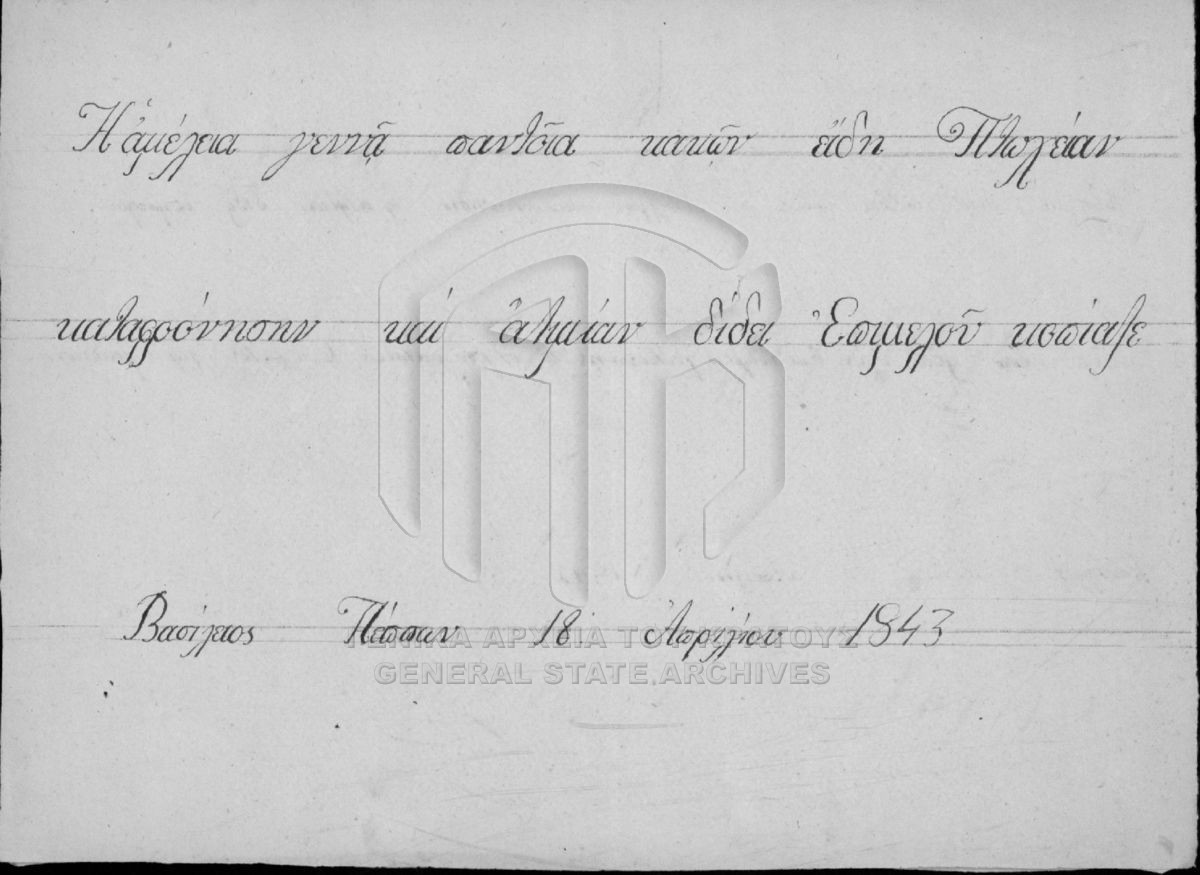 Ἡ ἀμέλεια γεννᾷ παντοῖα κακῶν εἴδη Πτωχείαν
καταφρόνησην καί ἀτιμίαν δίδει Ἐπιμελοῦ κοπίαζε
Βασίλειος Πάππων 18 Ἀπριλίου 1843
ΓΕΝΙΚΑ ΑΡΧΕΙΑ ΤΟΥ ΚΡΑΤΟΥΣ
GENERAL STATE ARCHIVES